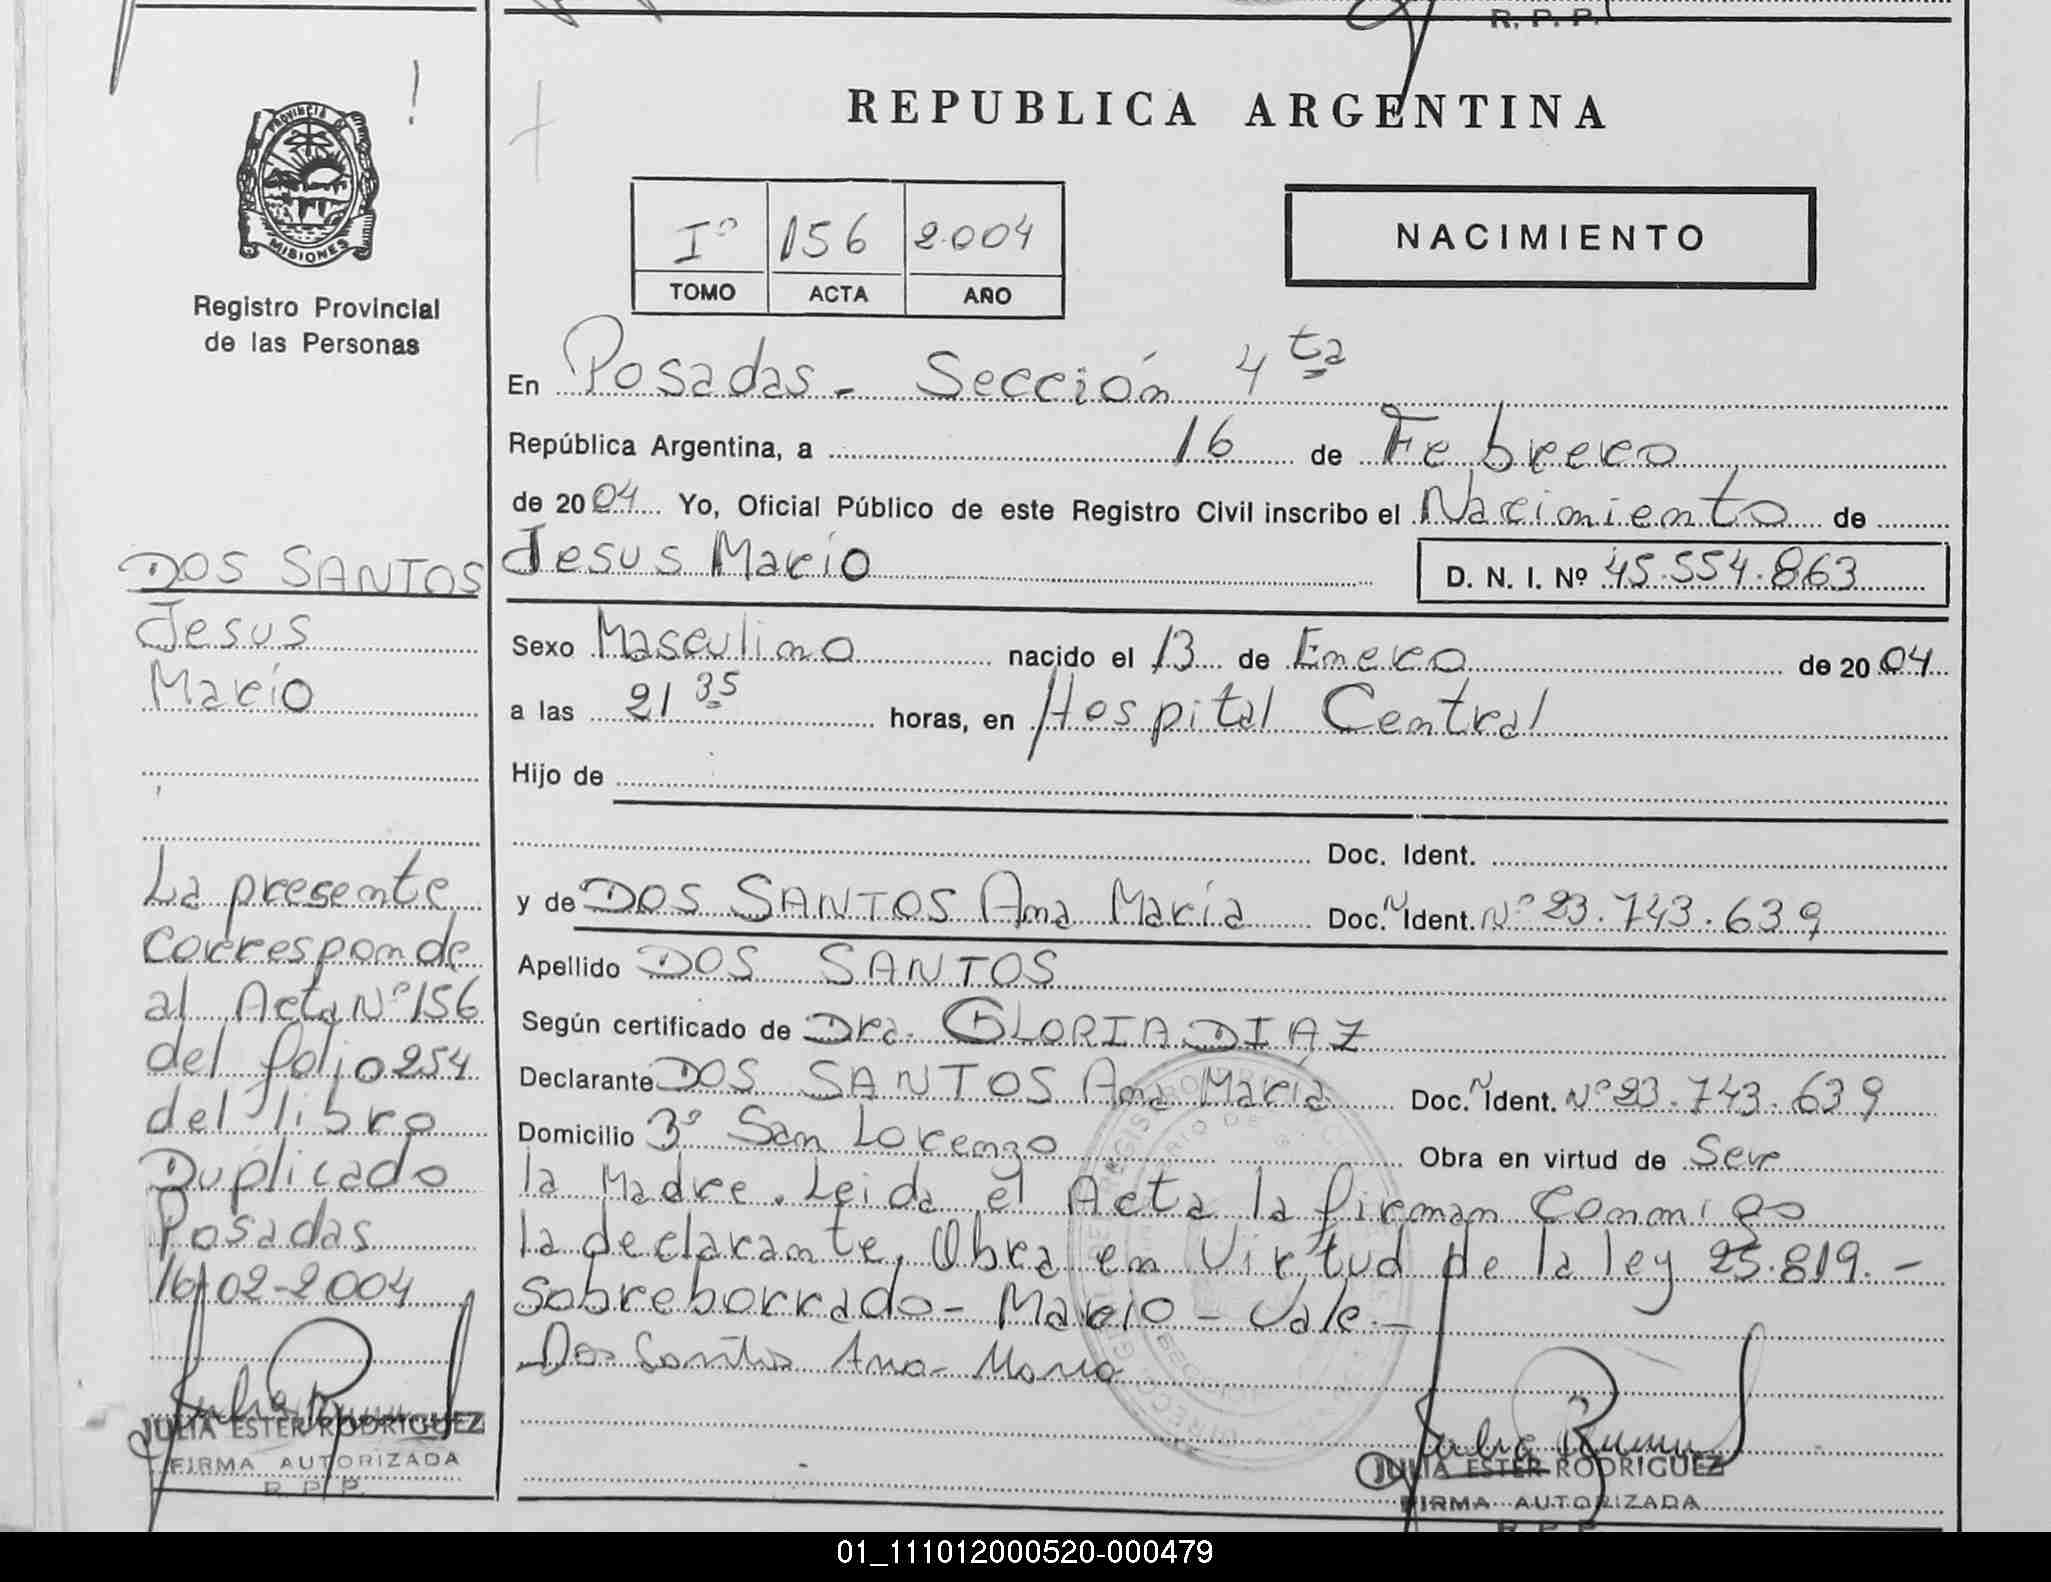 R. P. P.
PROVINCIA DE
MISIONES
Registro Provincial
de las Personas
DOS SANTOS
Jesus
Mario
La presente
corresponde
al Acta Nº 156
del folio 254
del libro
Duplicado
Posadas
16-02-2004
JULIA ESTER RODRIGUEZ
FIRMA AUTORIZADA
R. P. P.
REPUBLICA ARGENTINA
Iº 156 2.004
TOMO ACTA AÑO
NACIMIENTO
En Posadas - Sección 4ta
República Argentina, a 16 de Febrero
de 2004 Yo, Oficial Público de este Registro Civil inscribo el Nacimiento de
Jesus Mario D. N. I. Nº 45.554.863
Sexo Masculino nacido el 13 de Enero de 2004
a las 21 35 horas, en Hospital Central
Hijo de
Doc. Ident.
y de DOS SANTOS Ana María Doc. Ident. Nº 23.743.639
Apellido DOS SANTOS
Según certificado de Dra. GLORIA DIAZ
Declarante DOS SANTOS Ana María Doc. Ident. Nº 23.743.639
Domicilio 3º San Lorenzo Obra en virtud de Ser
la Madre. Leida el Acta la firman Conmigo
la declarante. Obra en Virtud de la ley 25.819.-
Sobreborrado - Mario - Vale.-
Dos Santos Ana Maria
JULIA ESTER RODRIGUEZ
FIRMA AUTORIZADA
R. P. P.
01_111012000520-000479